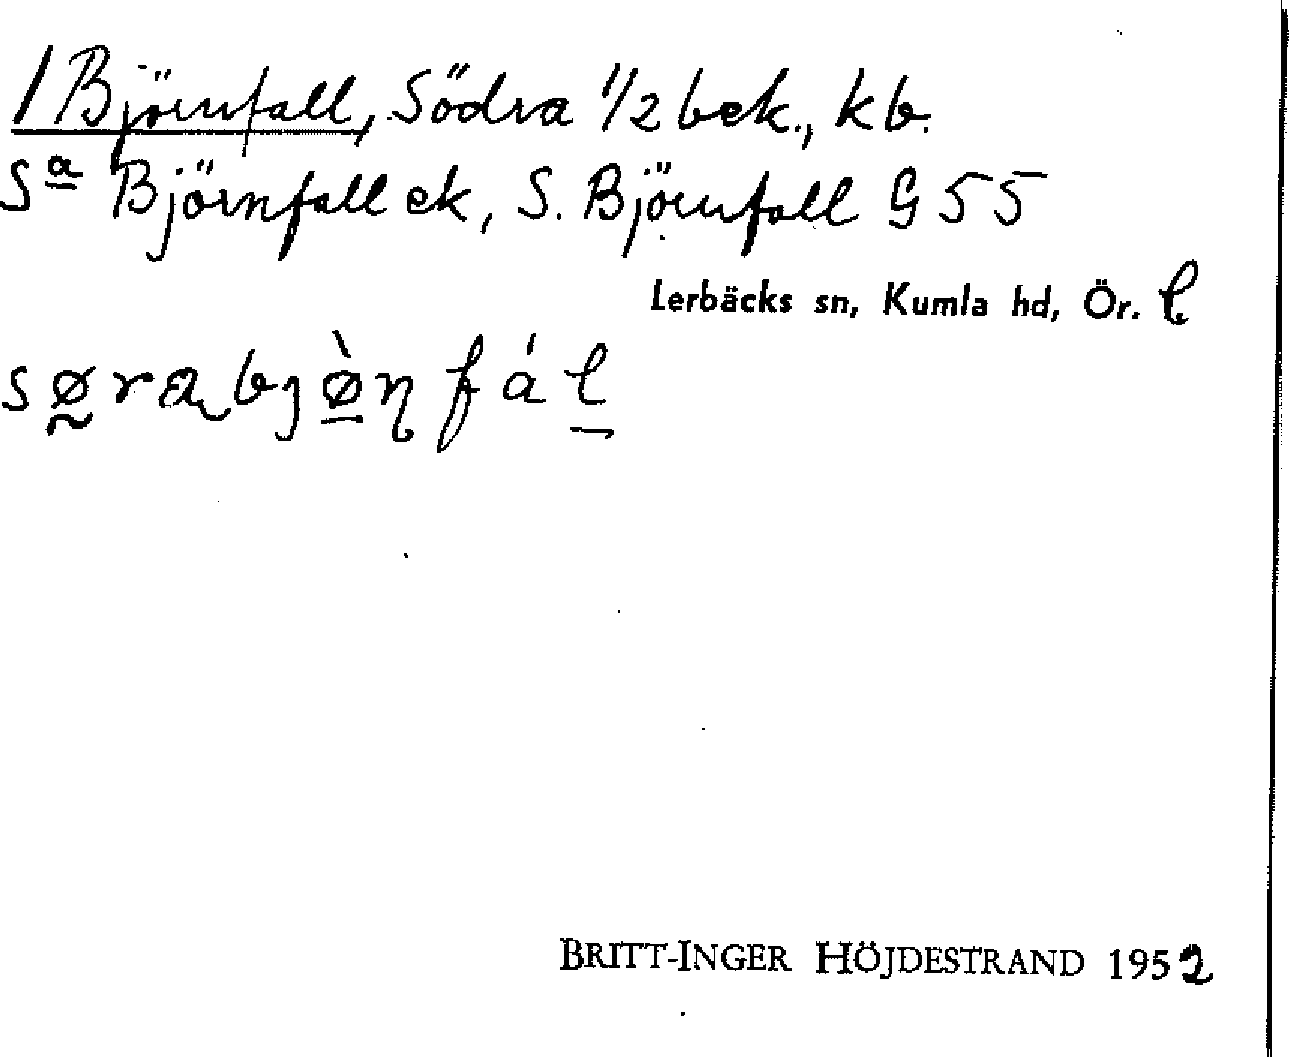 / Björnfall, Södra 1/2 bek., kb.
Sa Björnfall ek, S. Björnfall G 55
Lerbäcks sn, Kumla hd, Ör. l
sø̰rabjø̲̀ɳfál̲
BRITT-INGER HÖJDESTRAND 1952